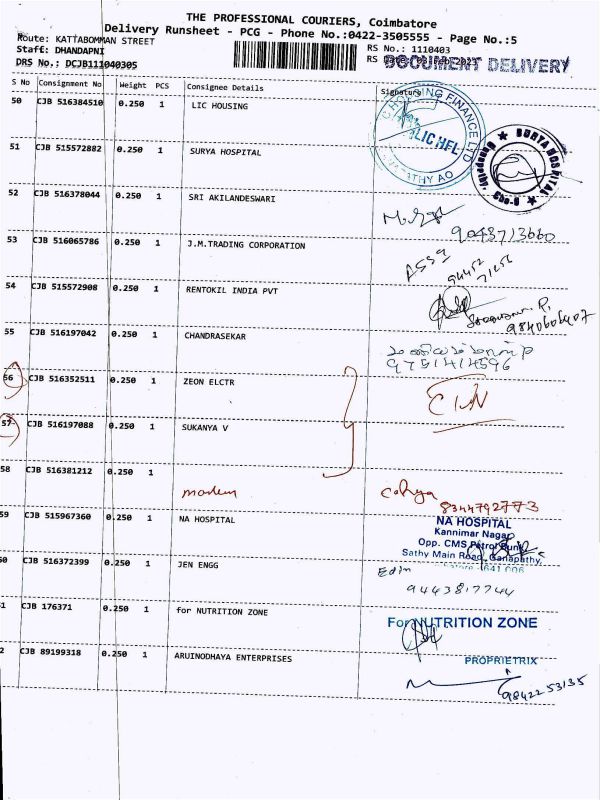 THE PROFESSIONAL COURIERS, Coimbatore
Delivery Runsheet - PCG - Phone No.:0422-3505555 - Page No.:5
Route: KATTABOMMAN STREET
Staff: DHANDAPNI
DRS No.: DCJB111040305
RS No.: 1110403
DOCUMENT DELIVERY
S No Consignment No Weight PCS Consignee Details Signature
50 CJB 516384510 0.250 1 LIC HOUSING
LIC HFL
51 CJB 515572882 0.250 1 SURYA HOSPITAL
SURYA HOSPITAL
52 CJB 516378044 0.250 1 SRI AKILANDESWARI
9043713660
53 CJB 516065786 0.250 1 J.M.TRADING CORPORATION
94452
71256
54 CJB 515572908 0.250 1 RENTOKIL INDIA PVT
9840606407
55 CJB 516197042 0.250 1 CHANDRASEKAR
9751414596
56 CJB 516352511 0.250 1 ZEON ELCTR
57 CJB 516197088 0.250 1 SUKANYA V
58 CJB 516381212 0.250 1
modem
8344792773
59 CJB 515967360 0.250 1 NA HOSPITAL
NA HOSPITAL
Kannimar Nagar
Opp. CMS Petrol Bunk
Sathy Main Road, Ganapathy,
641 006
60 CJB 516372399 0.250 1 JEN ENGG
Edin
9443817744
1 CJB 176371 0.250 1 for NUTRITION ZONE
For NUTRITION ZONE
PROPRIETRIX
2 CJB 89199318 0.250 1 ARUINODHAYA ENTERPRISES
9842253135